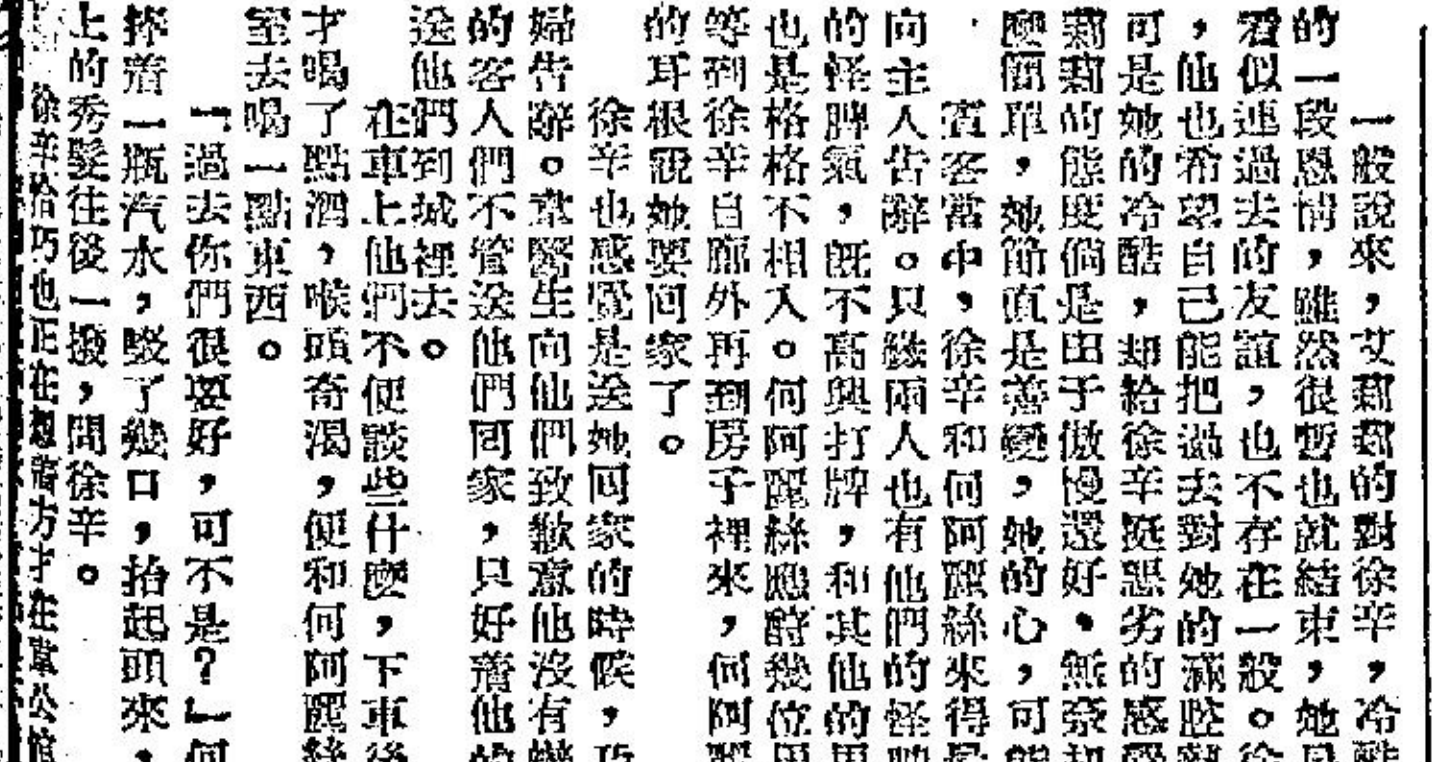 一般說來，艾莉莉的對徐辛，冷酷
的一段恩情，雖然很暫也就結束，她
看似連過去的友誼，也不存在一般。徐
，他也希望自己能把過去對她的滿腔
可是她的冷酷，却給徐辛挺惡劣的感
莉莉的態度倘是由于傲慢還好。無奈却
麼簡單，她簡直是善變，她的心，可能
賓客當中，徐辛和何阿麗絲來得最
向主人告辭。只緣兩人也有他們的怪
的怪脾氣，旣不高興打牌，和其他的男
也是格格不相入。何阿麗絲應酬幾位男
等到徐辛自廊外再到房子裡來，何阿麗
的耳根說她要回家了。
徐辛也感覺是送她回家的時候，巧
婦告辭。韋醫生向他們致歉意他沒有
的客人們不管送他們回家，只好着他的
送他們到城裡去。
在車上他們不便談些什麼，下車後
才喝了點酒，喉頭奇渴，便和何阿麗絲
室去喝一點東西。
「過去你們很要好，可不是？」何
捧着一瓶汽水，啜了幾口，抬起頭來，
上的秀髮往後一撥，問徐辛。
徐辛恰巧也正在想着方才在韋公館